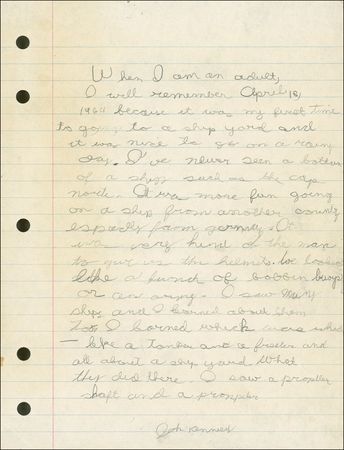 When I am an adult,
I will remember April 18,
1964 because it was my first time
to going to a ship yard and
it was nice to go on a rainy
day. I've never seen a bottom
of a ship such as the cap
norte. It was more fun going
on a ship from another country
espically from germany. It
was very kind of the man
to give us the helmits. We looked
like a bunch of bobbin buoys
or an army. I saw many
ships and I learned about them
too. I learned which was which
— like a tanker and a frieter and
all about a ship yard what
they did there. I saw a propeller
shaft and a propeller
John Kennedy